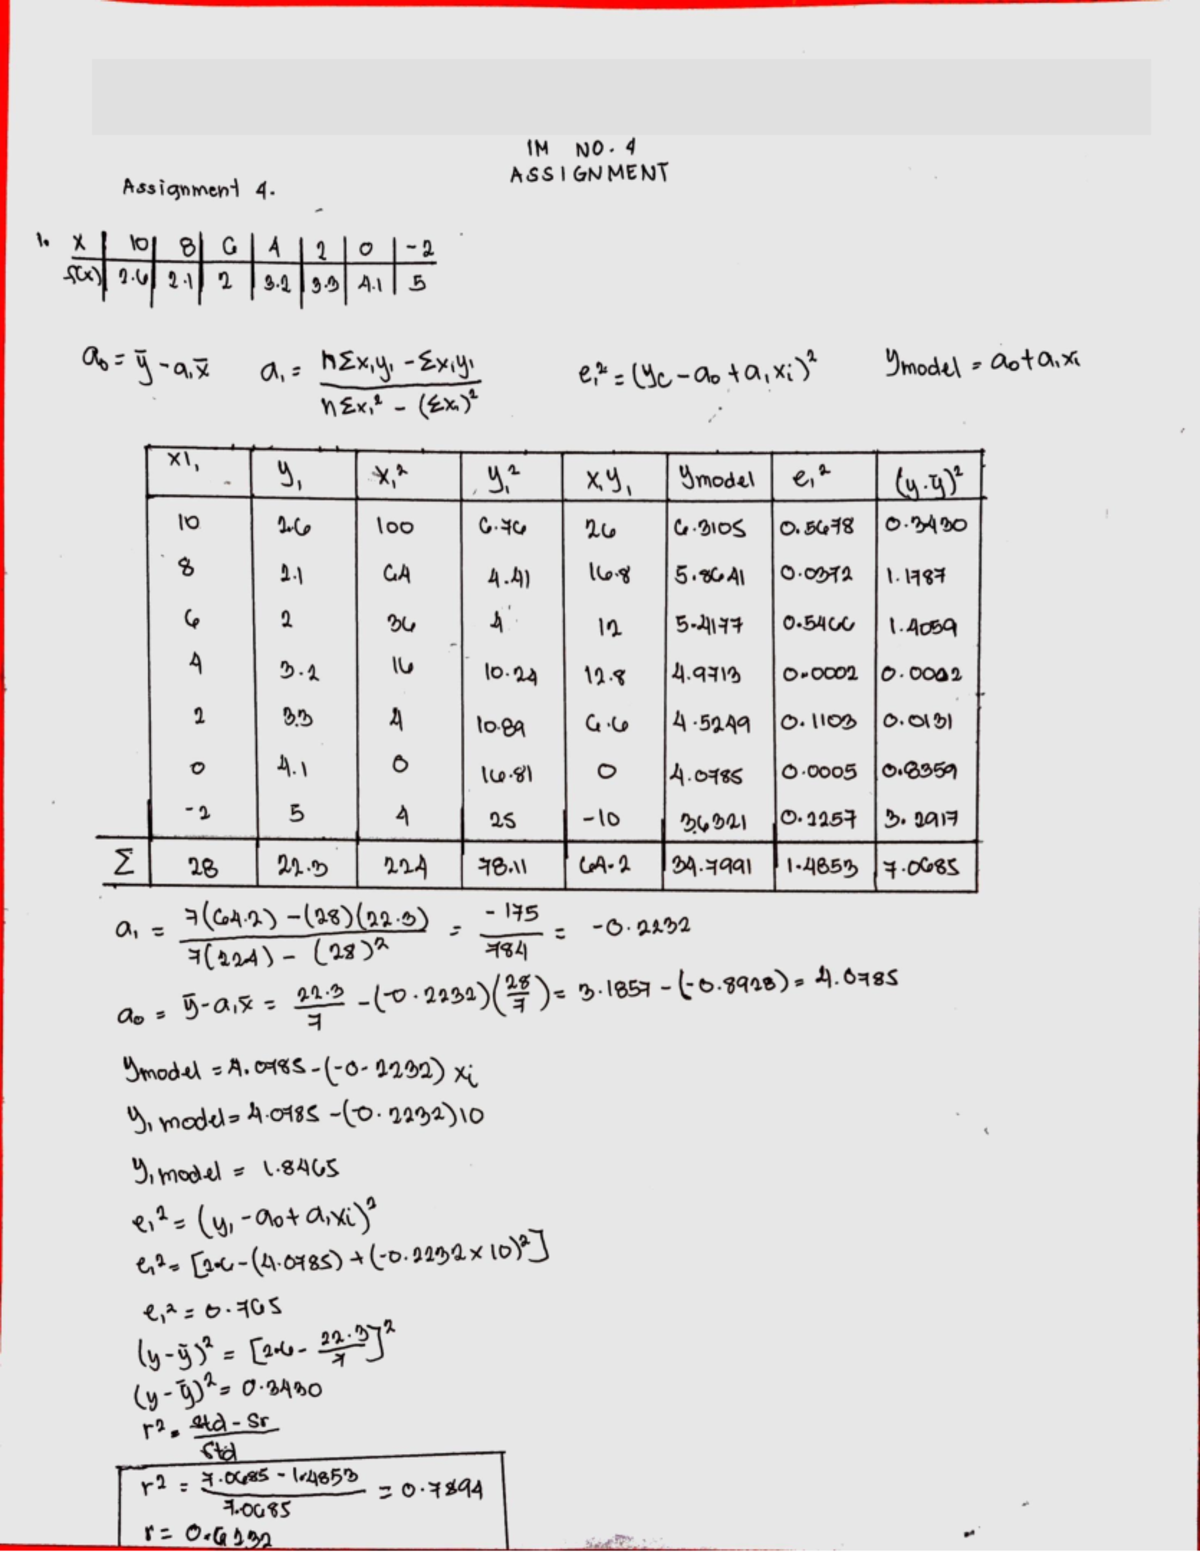 IM NO. 4
ASSIGNMENT
Assignment 4.
1. x | 10 | 8 | 6 | 4 | 2 | 0 | -2
f(x) | 2.6 | 2.1 | 2 | 3.2 | 3.3 | 4.1 | 5
a₀ = ȳ - a₁x̄ a₁ = nΣx₁y₁ - Σx₁y₁ / nΣx₁² - (Σx₁)² e₁² = (yc - a₀ + a₁xi)² ymodel = a₀ + a₁xi
x1, | y₁ | x₁² | y₁² | x₁y₁ | ymodel | e₁² | (y-ȳ)²
10 | 2.6 | 100 | 6.76 | 26 | 6.3105 | 0.5678 | 0.3430
8 | 2.1 | 64 | 4.41 | 16.8 | 5.8641 | 0.0372 | 1.1787
6 | 2 | 36 | 4 | 12 | 5.4177 | 0.5466 | 1.4059
4 | 3.2 | 16 | 10.24 | 12.8 | 4.9713 | 0.0002 | 0.0002
2 | 3.3 | 4 | 10.89 | 6.6 | 4.5249 | 0.1103 | 0.0131
0 | 4.1 | 0 | 16.81 | 0 | 4.0785 | 0.0005 | 0.8359
-2 | 5 | 4 | 25 | -10 | 3.6321 | 0.2257 | 3.2917
Σ | 28 | 22.3 | 224 | 78.11 | 64.2 | 34.7991 | 1.4853 | 7.0685
a₁ = 7(64.2) - (28)(22.3) / 7(224) - (28)² = -175 / 784 = -0.2232
a₀ = ȳ - a₁x̄ = 22.3 / 7 - (-0.2232)(28/7) = 3.1857 - (-0.8928) = 4.0785
ymodel = 4.0785 - (-0.2232) xi
y₁ model = 4.0785 - (-0.2232)10
y₁ model = 1.8465
e₁² = (y₁ - a₀ + a₁xi)²
e₁² = [2.6 - (4.0785) + (-0.2232 × 10)²]
e₁² = 0.765
(y-ȳ)² = [2.6 - 22.3/7]²
(y-ȳ)² = 0.3430
r² = Std - Sr / Std
r² = 7.0685 - 1.4853 / 7.0685 = 0.7894
r = 0.6232